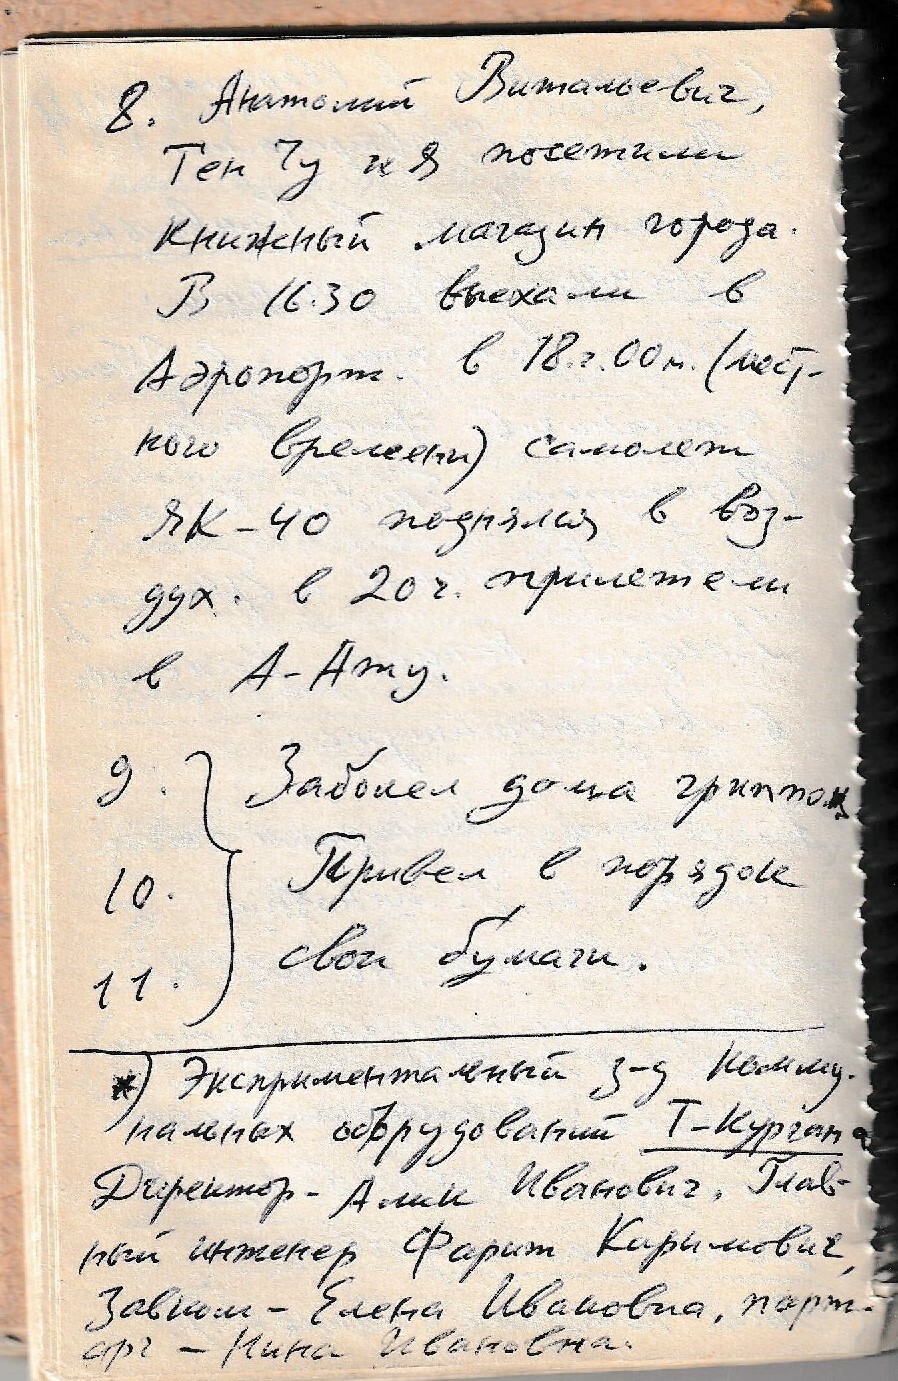 8. Анатолий Витальевич,
Тен Чу и я посетили
книжный магазин города.
В 16.30 выехали в
Аэропорт. в 18.ч.00м. (мест-
ного времени) самолет
ЯК-40 поднялся в воз-
дух. в 20 ч. прилетели
в А-Ату.
9. Заболел дома гриппом
10. Привел в порядок
11. свои бумаги.
*) Эксприментальный з-д Комму-
нальных оборудований Т-Кургана
Директор - Алик Иванович. Глав-
ный инженер Фарит Каримович,
Завком - Елена Ивановна, парт-
орг - Нина Ивановна.